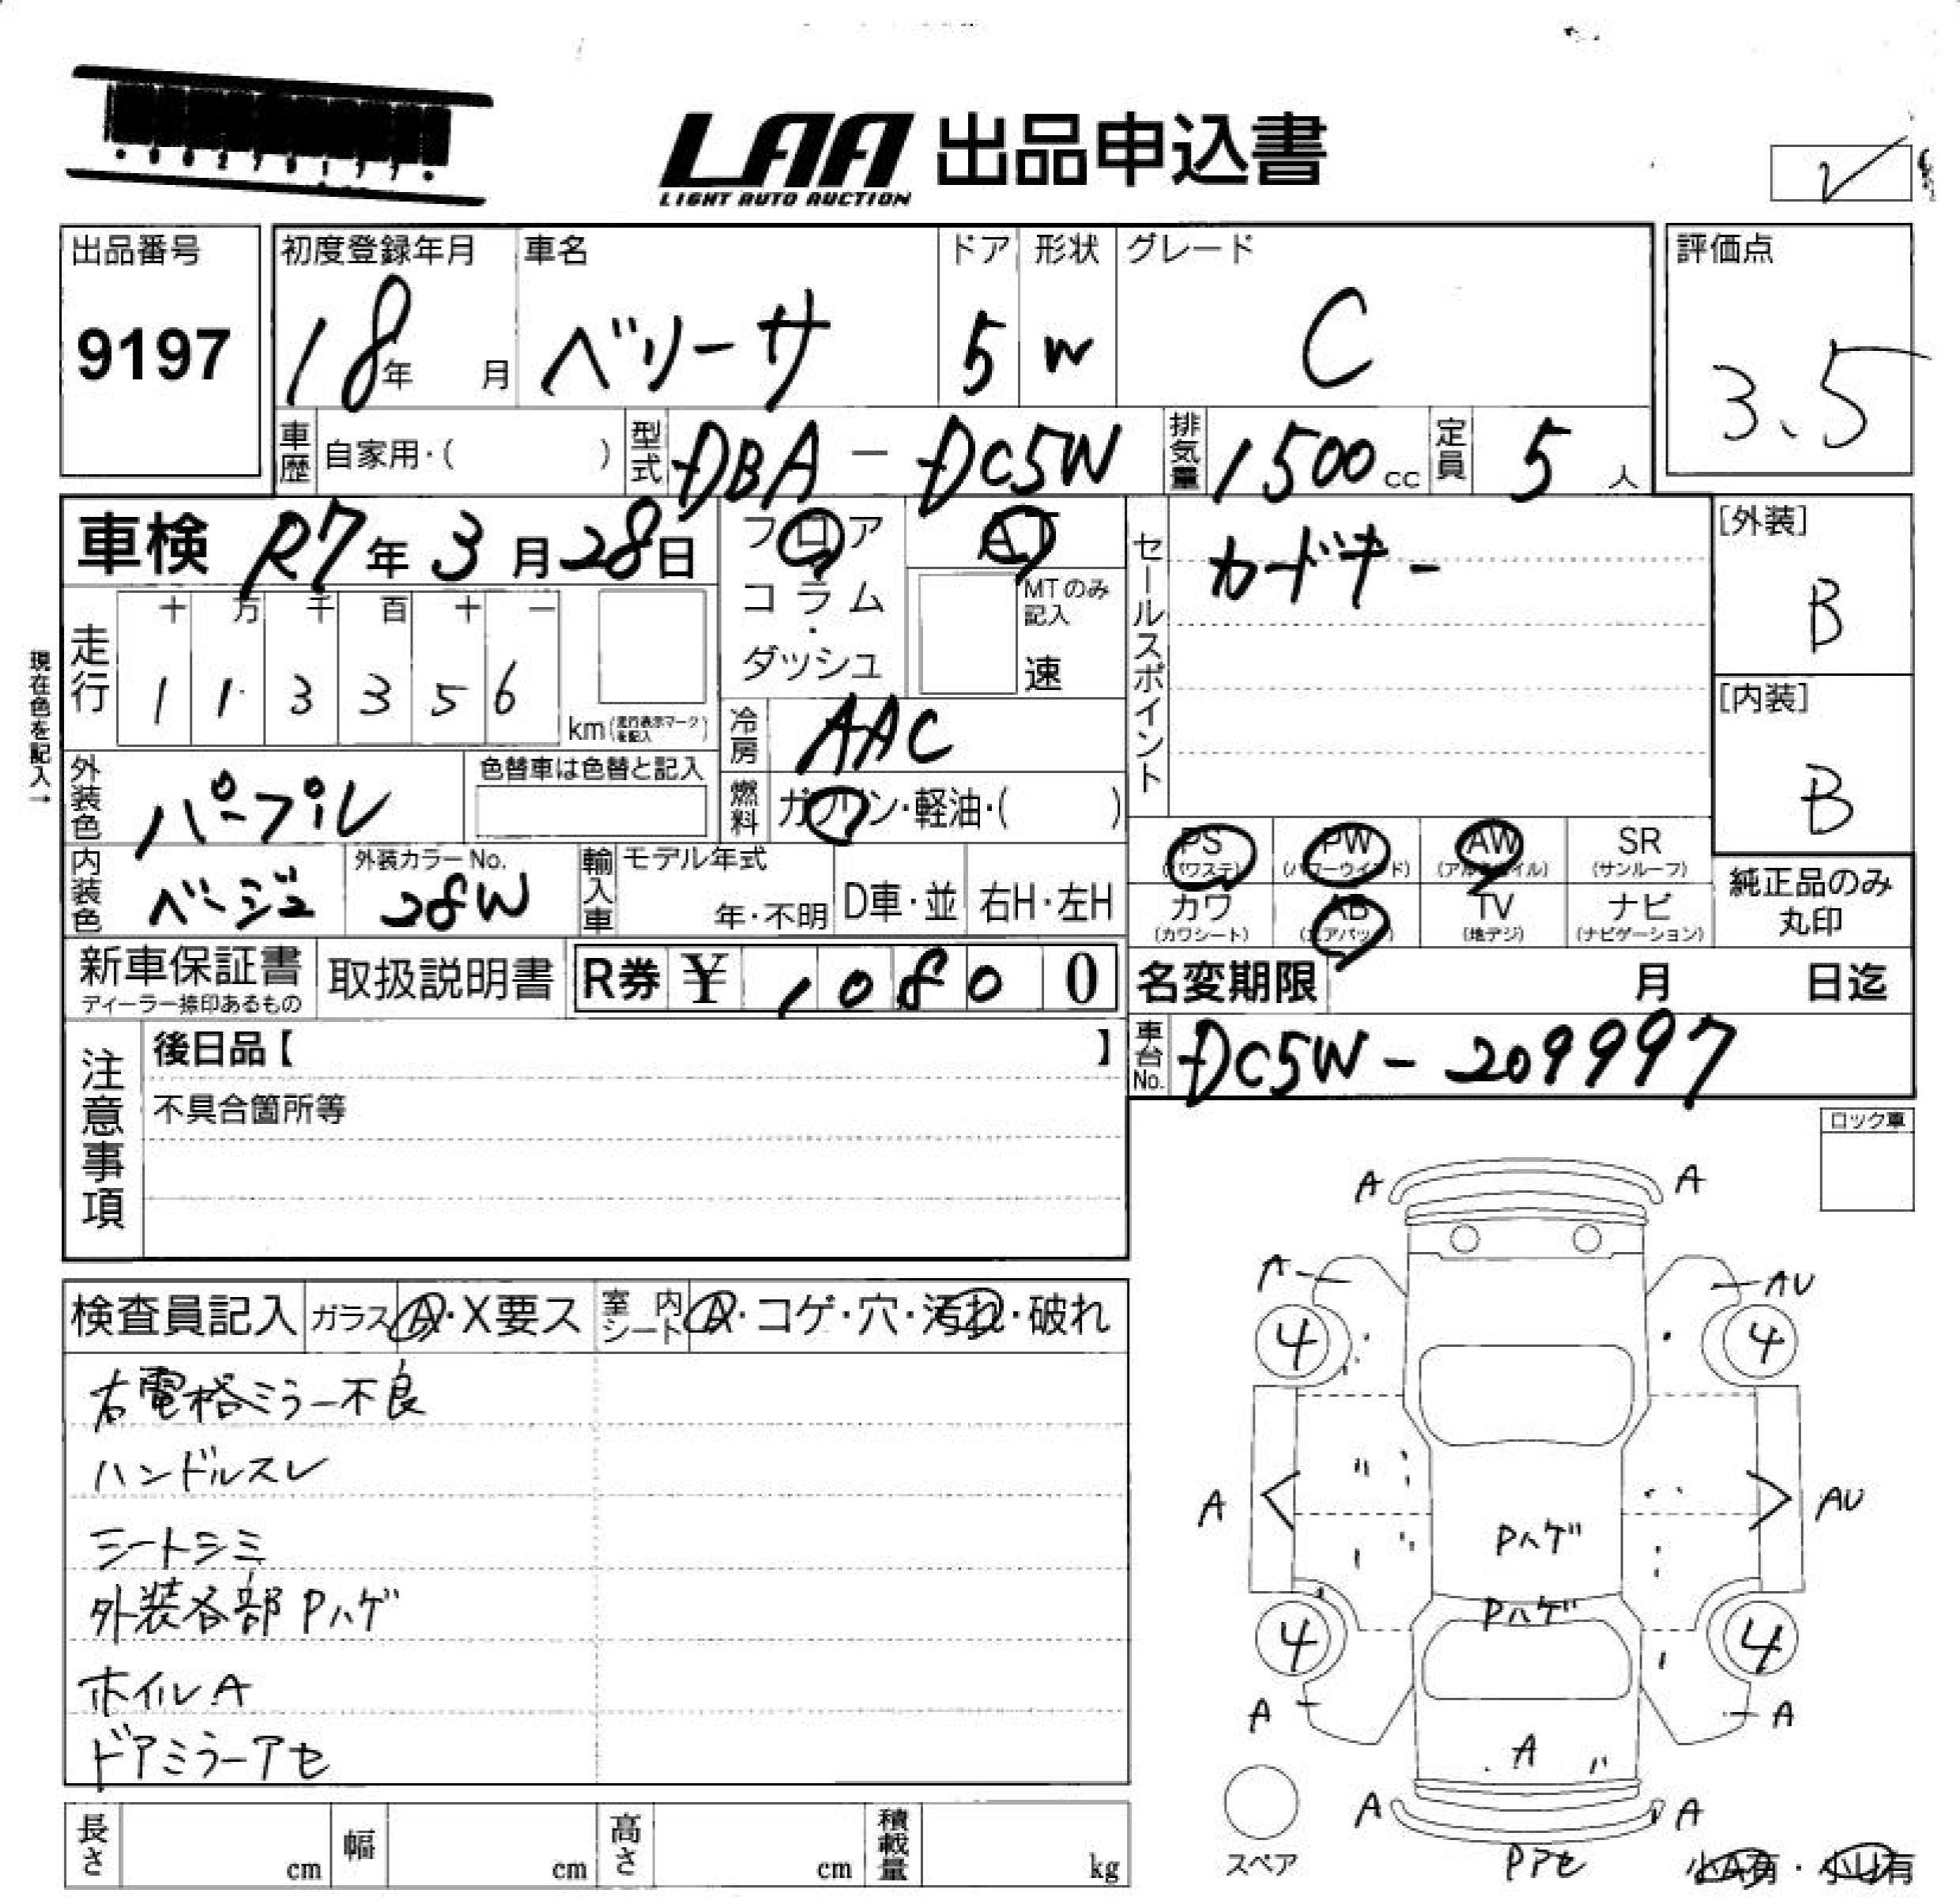 LAA 出品申込書
LIGHT AUTO AUCTION
出品番号
9197
初度登録年月
18年 月
車名
ベリーサ
ドア
5
形状
W
グレード
C
評価点
3.5
車歴 自家用・( )
型式 DBA-DC5W
排気量 1500cc
定員 5人
車検 R7年3月28日
フロア
コラム・
ダッシュ
AT
MTのみ
記入
速
セールスポイント
カードキー
[外装]
B
[内装]
B
現在色を記入→
走行
十 万 千 百 十 一
1 1 3 3 5 6
km(走行表示マークを記入)
冷房 AAC
燃料 ガソリン・軽油・( )
外装色 パープル
色替車は色替と記入
内装色 ベージュ
外装カラーNo.
28W
輸入車
モデル年式
年・不明
D車・並
右H・左H
PS
(パワステ)
PW
(パワーウインド)
AW
(アルミホイル)
SR
(サンルーフ)
カワ
(カワシート)
AB
(エアバック)
TV
(地デジ)
ナビ
(ナビゲーション)
純正品のみ
丸印
新車保証書
ディーラー捺印あるもの
取扱説明書
R券 ¥ 10800
名変期限 月 日迄
車台No. DC5W-209997
注意事項
後日品【 】
不具合箇所等
ロック車
検査員記入
ガラス A・X要ス
室内シート A・コゲ・穴・汚れ・破れ
右電格ミラー不良
ハンドルスレ
シートシミ
外装各部Pハゲ
ホイルA
ドアミラーアセ
A A
A AU
4 4
A AU
Pハゲ
Pハゲ
4 4
A A
A
A A
Pアセ
スペア
小A有・小U有
長さ cm
幅 cm
高さ cm
積載量 kg